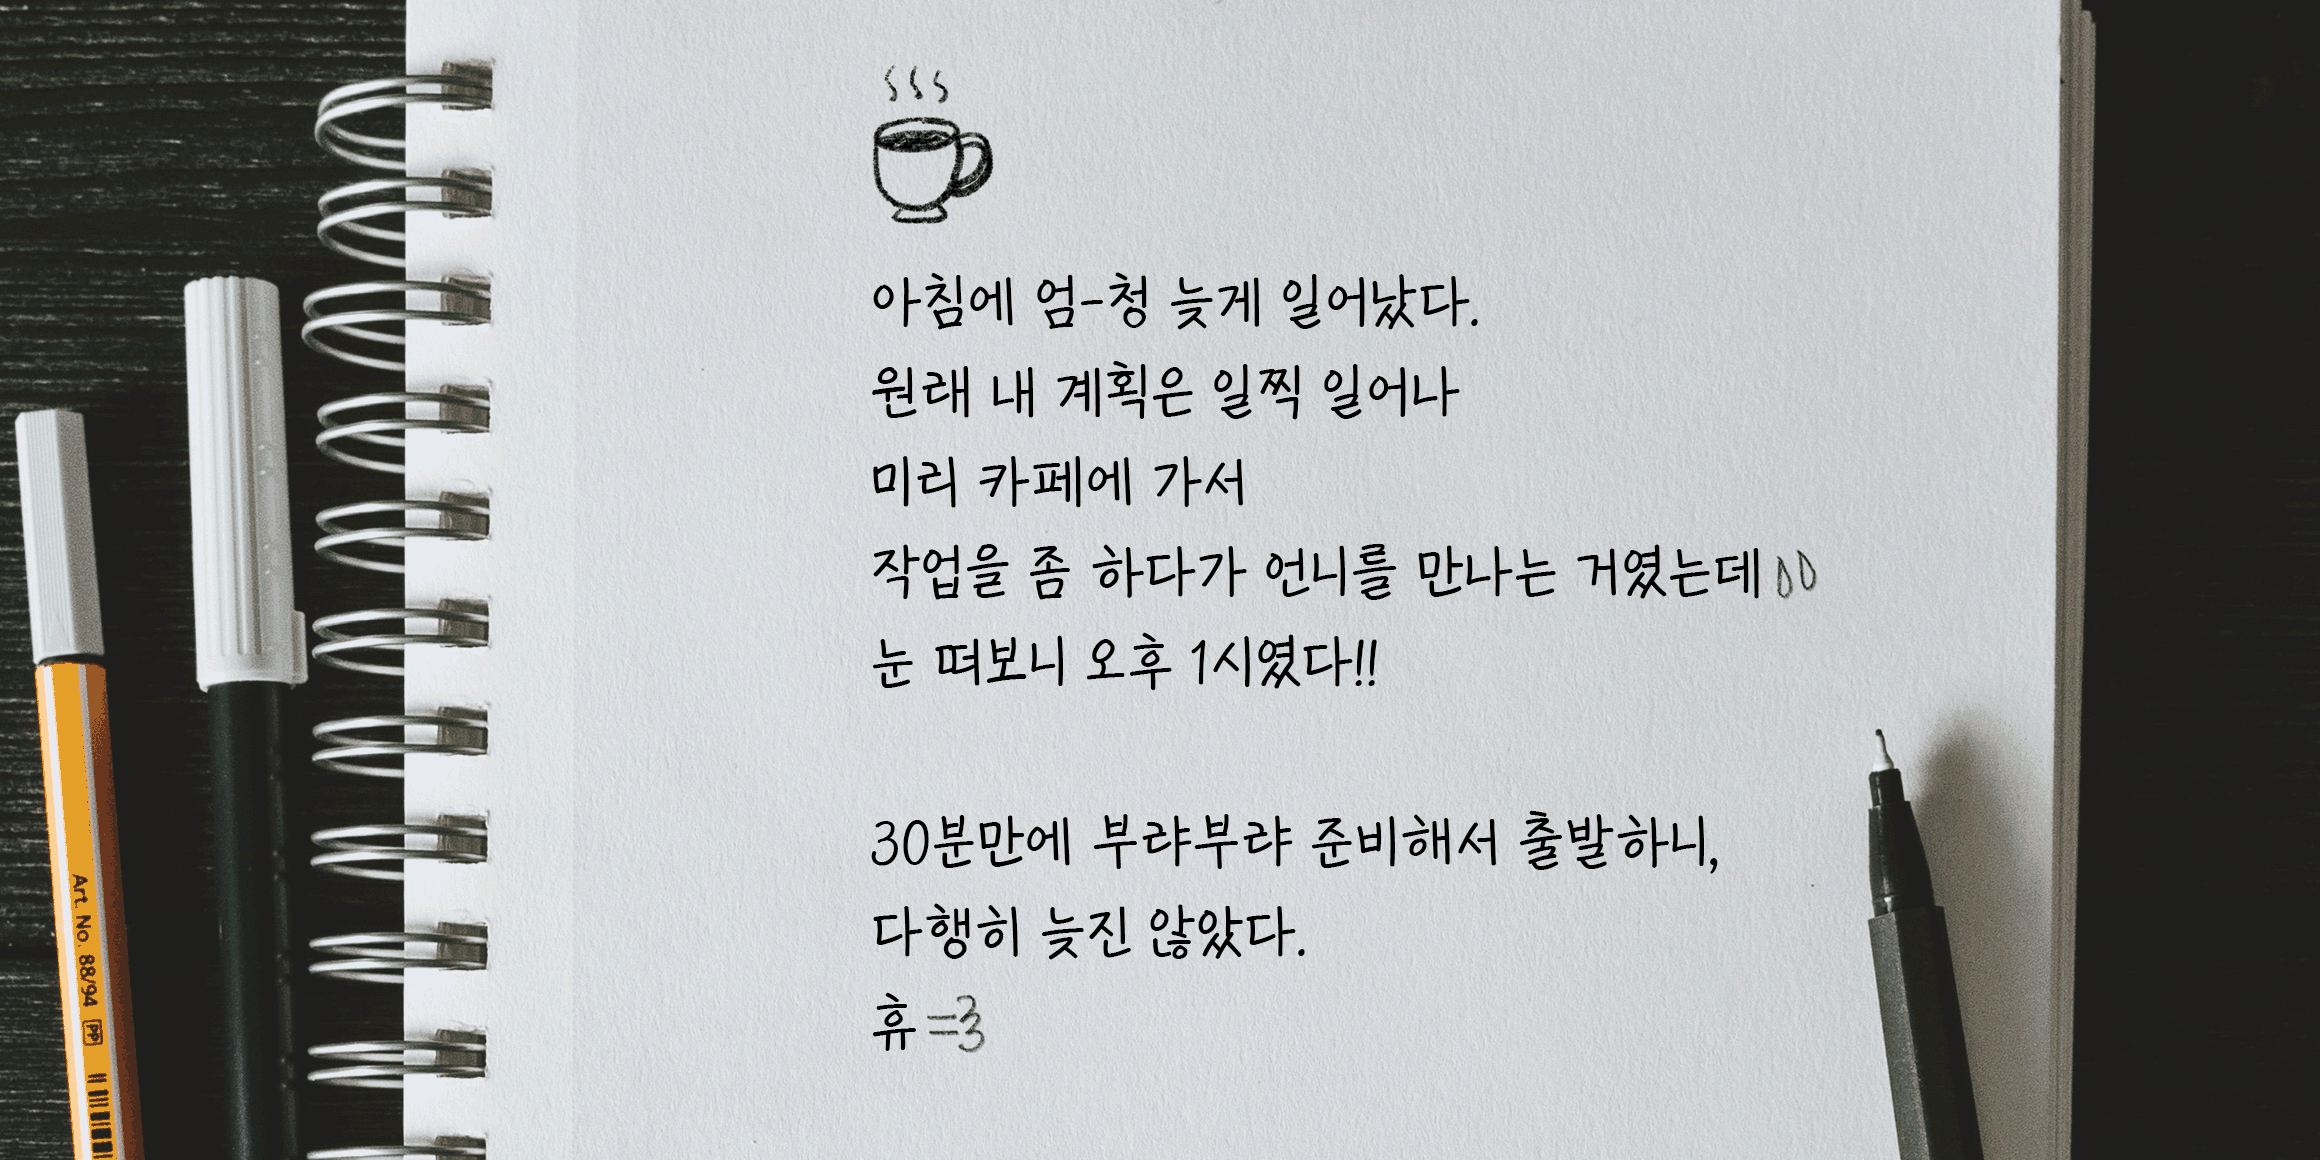 아침에 엄-청 늦게 일어났다.
원래 내 계획은 일찍 일어나
미리 카페에 가서
작업을 좀 하다가 언니를 만나는 거였는데
눈 떠보니 오후 1시였다!!
30분만에 부랴부랴 준비해서 출발하니,
다행히 늦진 않았다.
휴=3
Art. No. 88/94 PP